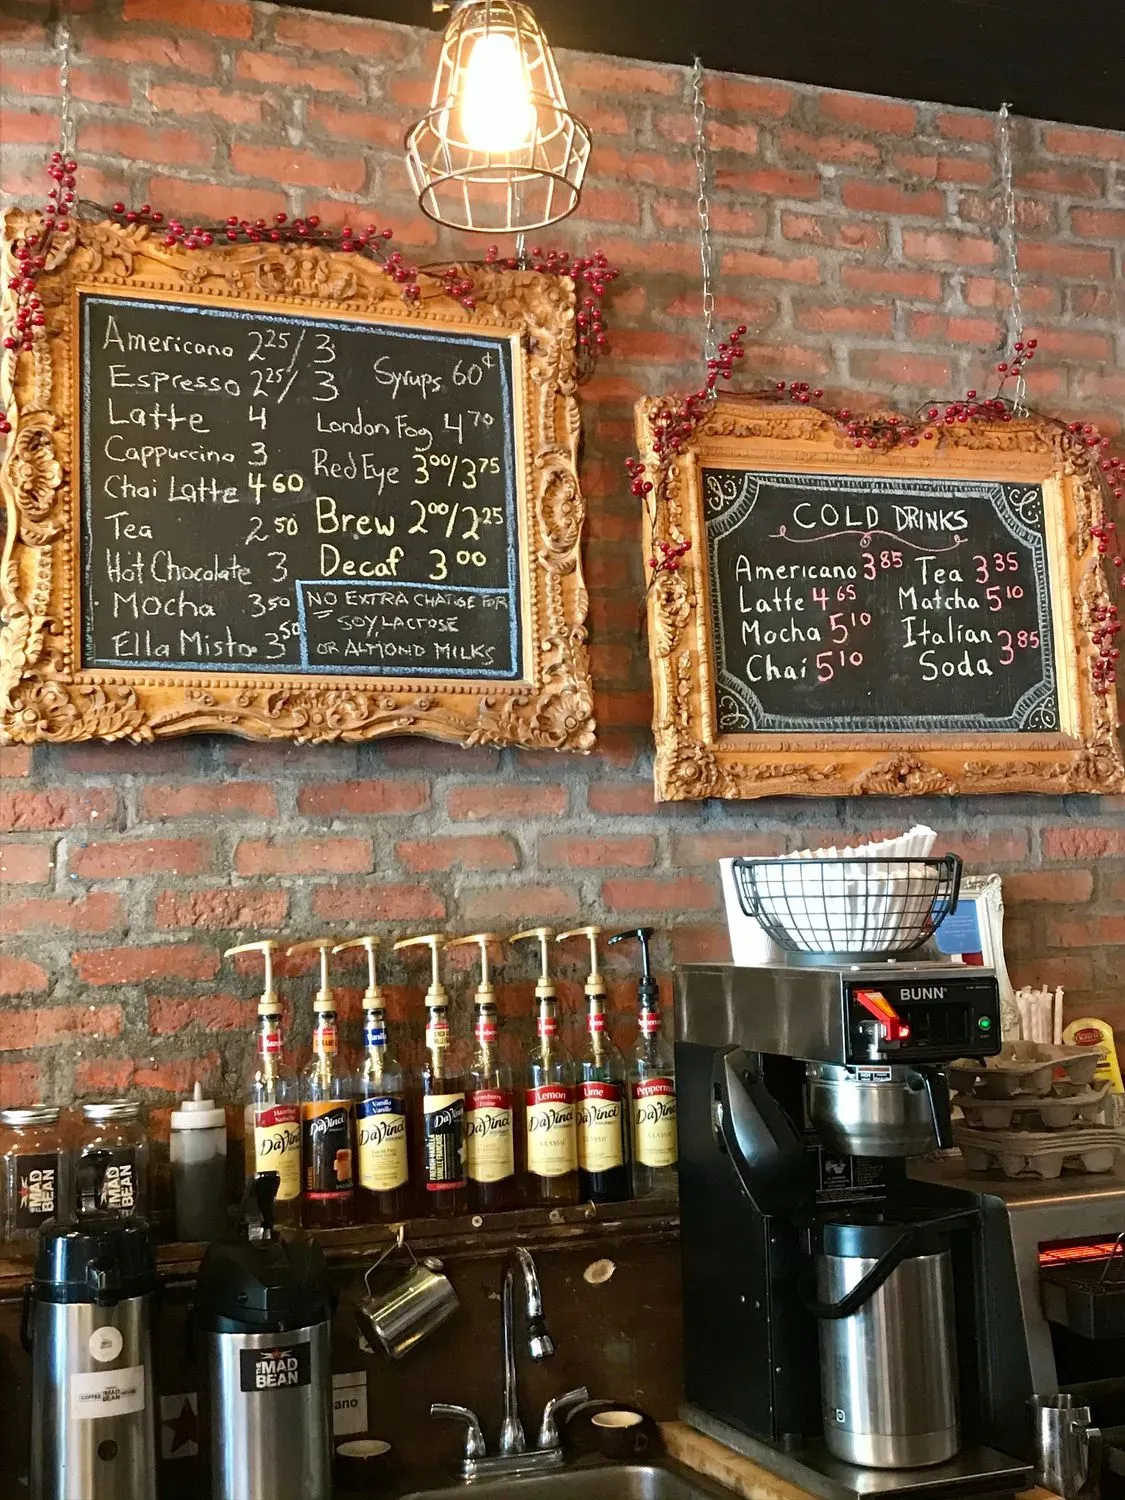 Americano 2 25/ 3
Espresso 2 25/ 3
Latte 4
Cappuccino 3
Chai Latte 4 60
Tea 2 50
Hot Chocolate 3
Mocha 3 50
Ella Misto 3 50
Syrups 60¢
London Fog 4 70
Red Eye 3 00/3 75
Brew 2 00/2 25
Decaf 3 00
NO EXTRA CHARGE FOR
SOY, LACTOSE
OR ALMOND MILKS
COLD DRINKS
Americano 3 85
Latte 4 65
Mocha 5 10
Chai 5 10
Tea 3 35
Matcha 5 10
Italian
Soda 3 85
BUNN
DaVinci
DaVinci
Vanilla
DaVinci
DaVinci
DaVinci
Lemon
DaVinci
CLASSIC
Lime
DaVinci
CLASSIC
DaVinci
CLASSIC
MAD
BEAN
MAD
BEAN
COFFEE THE MAD BEAN HOUSE
THE MAD
BEAN